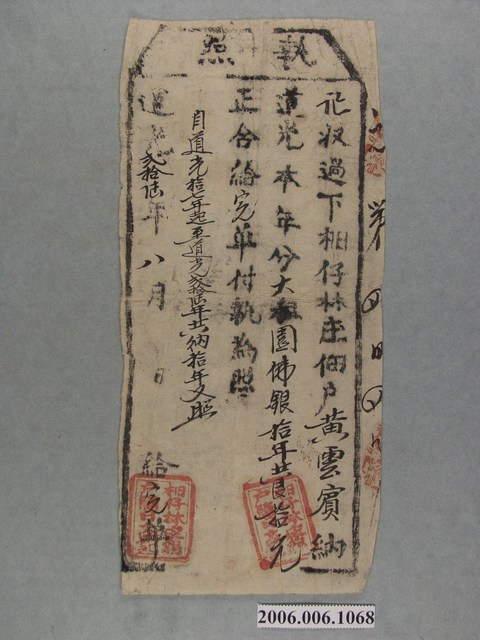 執照
記収過下柑仔林庄佃戶黃雲賓納
道光本年分大租園佛銀拾年共艮拾元
正合給完單付執為照
自道光拾七年起至道光弍拾陆年共納拾年又照
道光弍拾陆年八月 日給完單
2006.006.1068